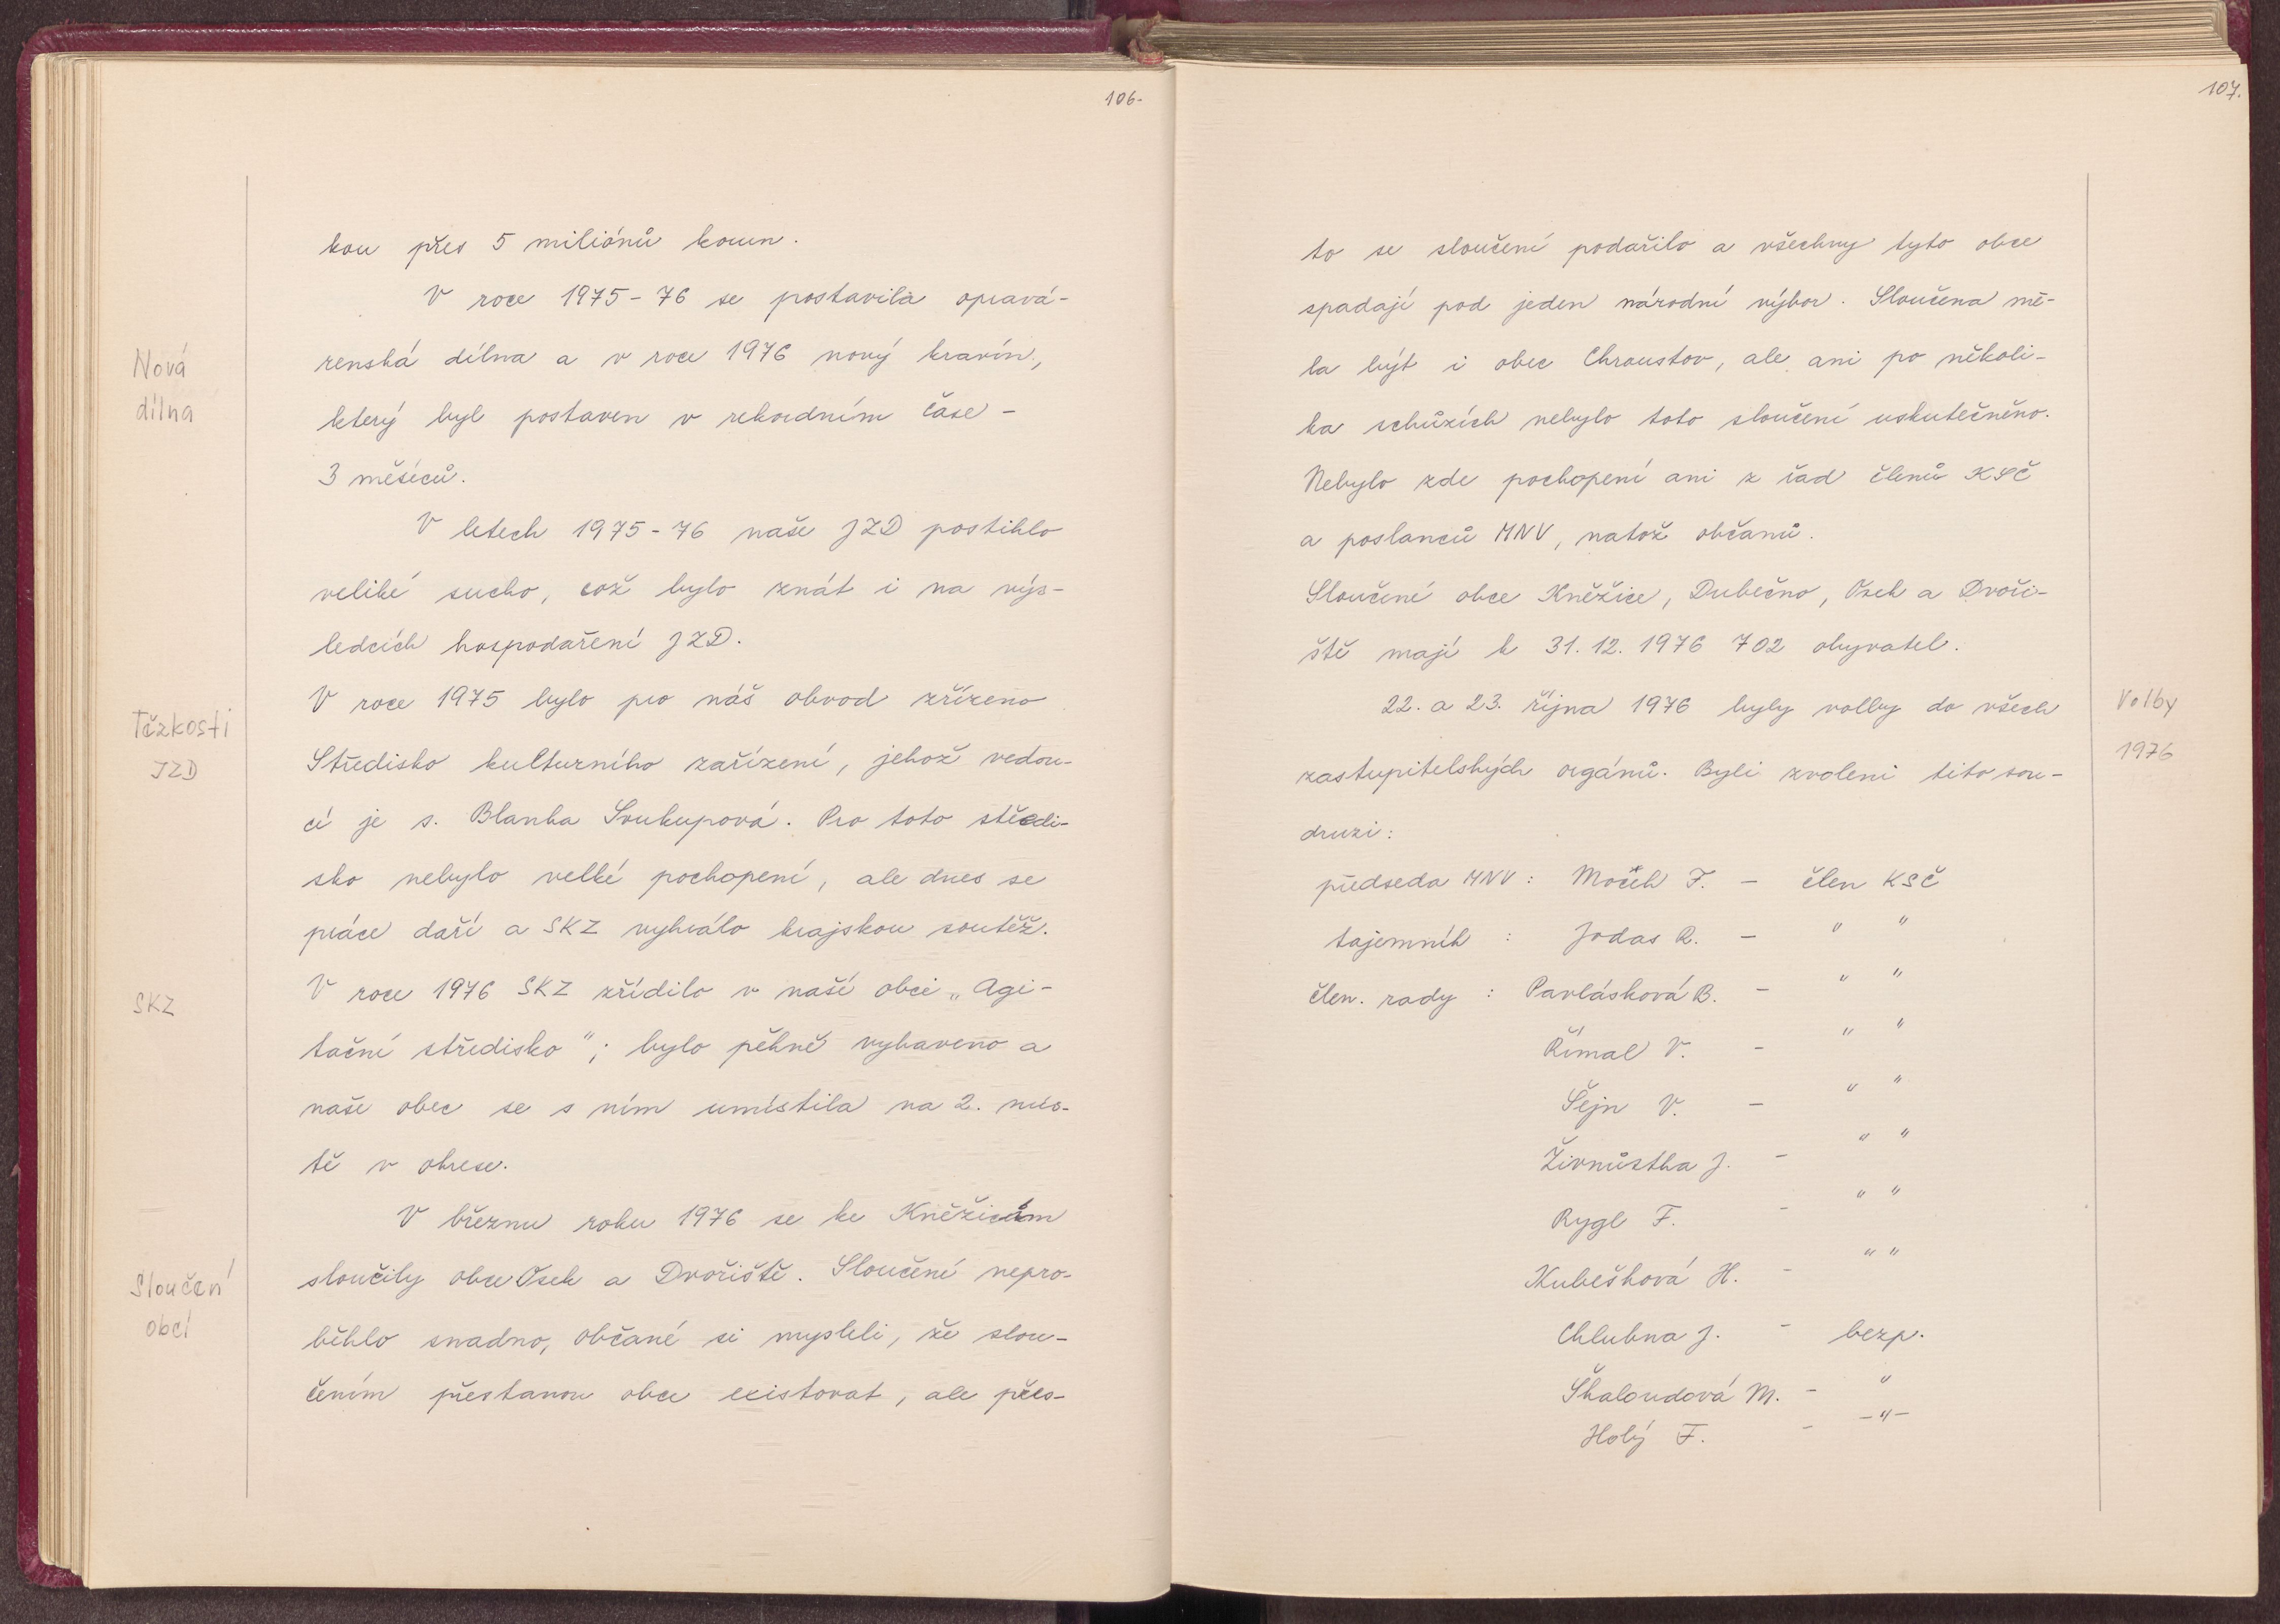 106.
kou přes 5 miliónů korun.
V roce 1975-76 se postavila opravá-
Nová
renská dílna a v roce 1976 nový kravín,
dílna
který byl postaven v rekordním čase -
3 měsíců.
V letech 1975-76 naše JZD postihlo
veliké sucho, což bylo znát i na výs-
ledcích hospodaření JZD.
V roce 1975 bylo pro náš obvod zřízeno
Těžkosti
Středisko kulturního zařízení, jehož vedou-
JZD
cí je s. Blanka Soukupová. Pro toto středi-
sko nebylo velké pochopení, ale dnes se
práce daří a SKZ vyhrálo krajskou soutěž.
V roce 1976 SKZ zřídilo v naší obci „Agi-
SKZ
tační středisko"; bylo pěkně vybaveno a
naše obec se s ním umístila na 2. mís-
tě v okrese.
V březnu roku 1976 se ke Kněžicům
sloučily obce Osek a Dvořiště. Sloučení nepro-
Sloučení
obcí
běhlo snadno, občané si mysleli, že slou-
čením přestanou obce existovat, ale přes-
107.
to se sloučení podařilo a všechny tyto obce
spadají pod jeden národní výbor. Sloučena mě-
la být i obec Chroustov, ale ani po několi-
ka schůzích nebylo toto sloučení uskutečněno.
Nebylo zde pochopení ani z řad členů KSČ
a poslanců MNV, natož občanů.
Sloučené obce Kněžice, Dubečno, Osek a Dvoři-
ště mají k 31. 12. 1976 702 obyvatel.
22. a 23. října 1976 byly volby do všech
Volby
1976
zastupitelských orgánů. Byli zvoleni tito sou-
druzi:
předseda MNV: Moček F. - člen KSČ
tajemník : Jodas R. - " "
člen. rady : Pavlásková B. - " "
Římal V. - " "
Šejn V. - " "
Živnůstka J. - " "
Rygl F. - " "
Kubešková H. - " "
Chlubna J. - bezp.
Škaloudová M. - "
Holý F. - -"-